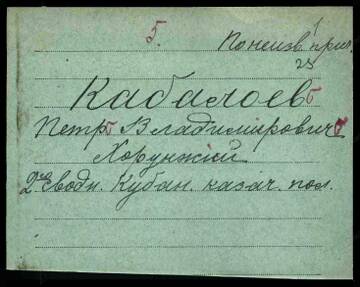 5.
По неизв. прич.
23
Кабалоевъ
Петръ Владимировичъ
Хорунжій
2го Сводн. Кубан. казач. пол.